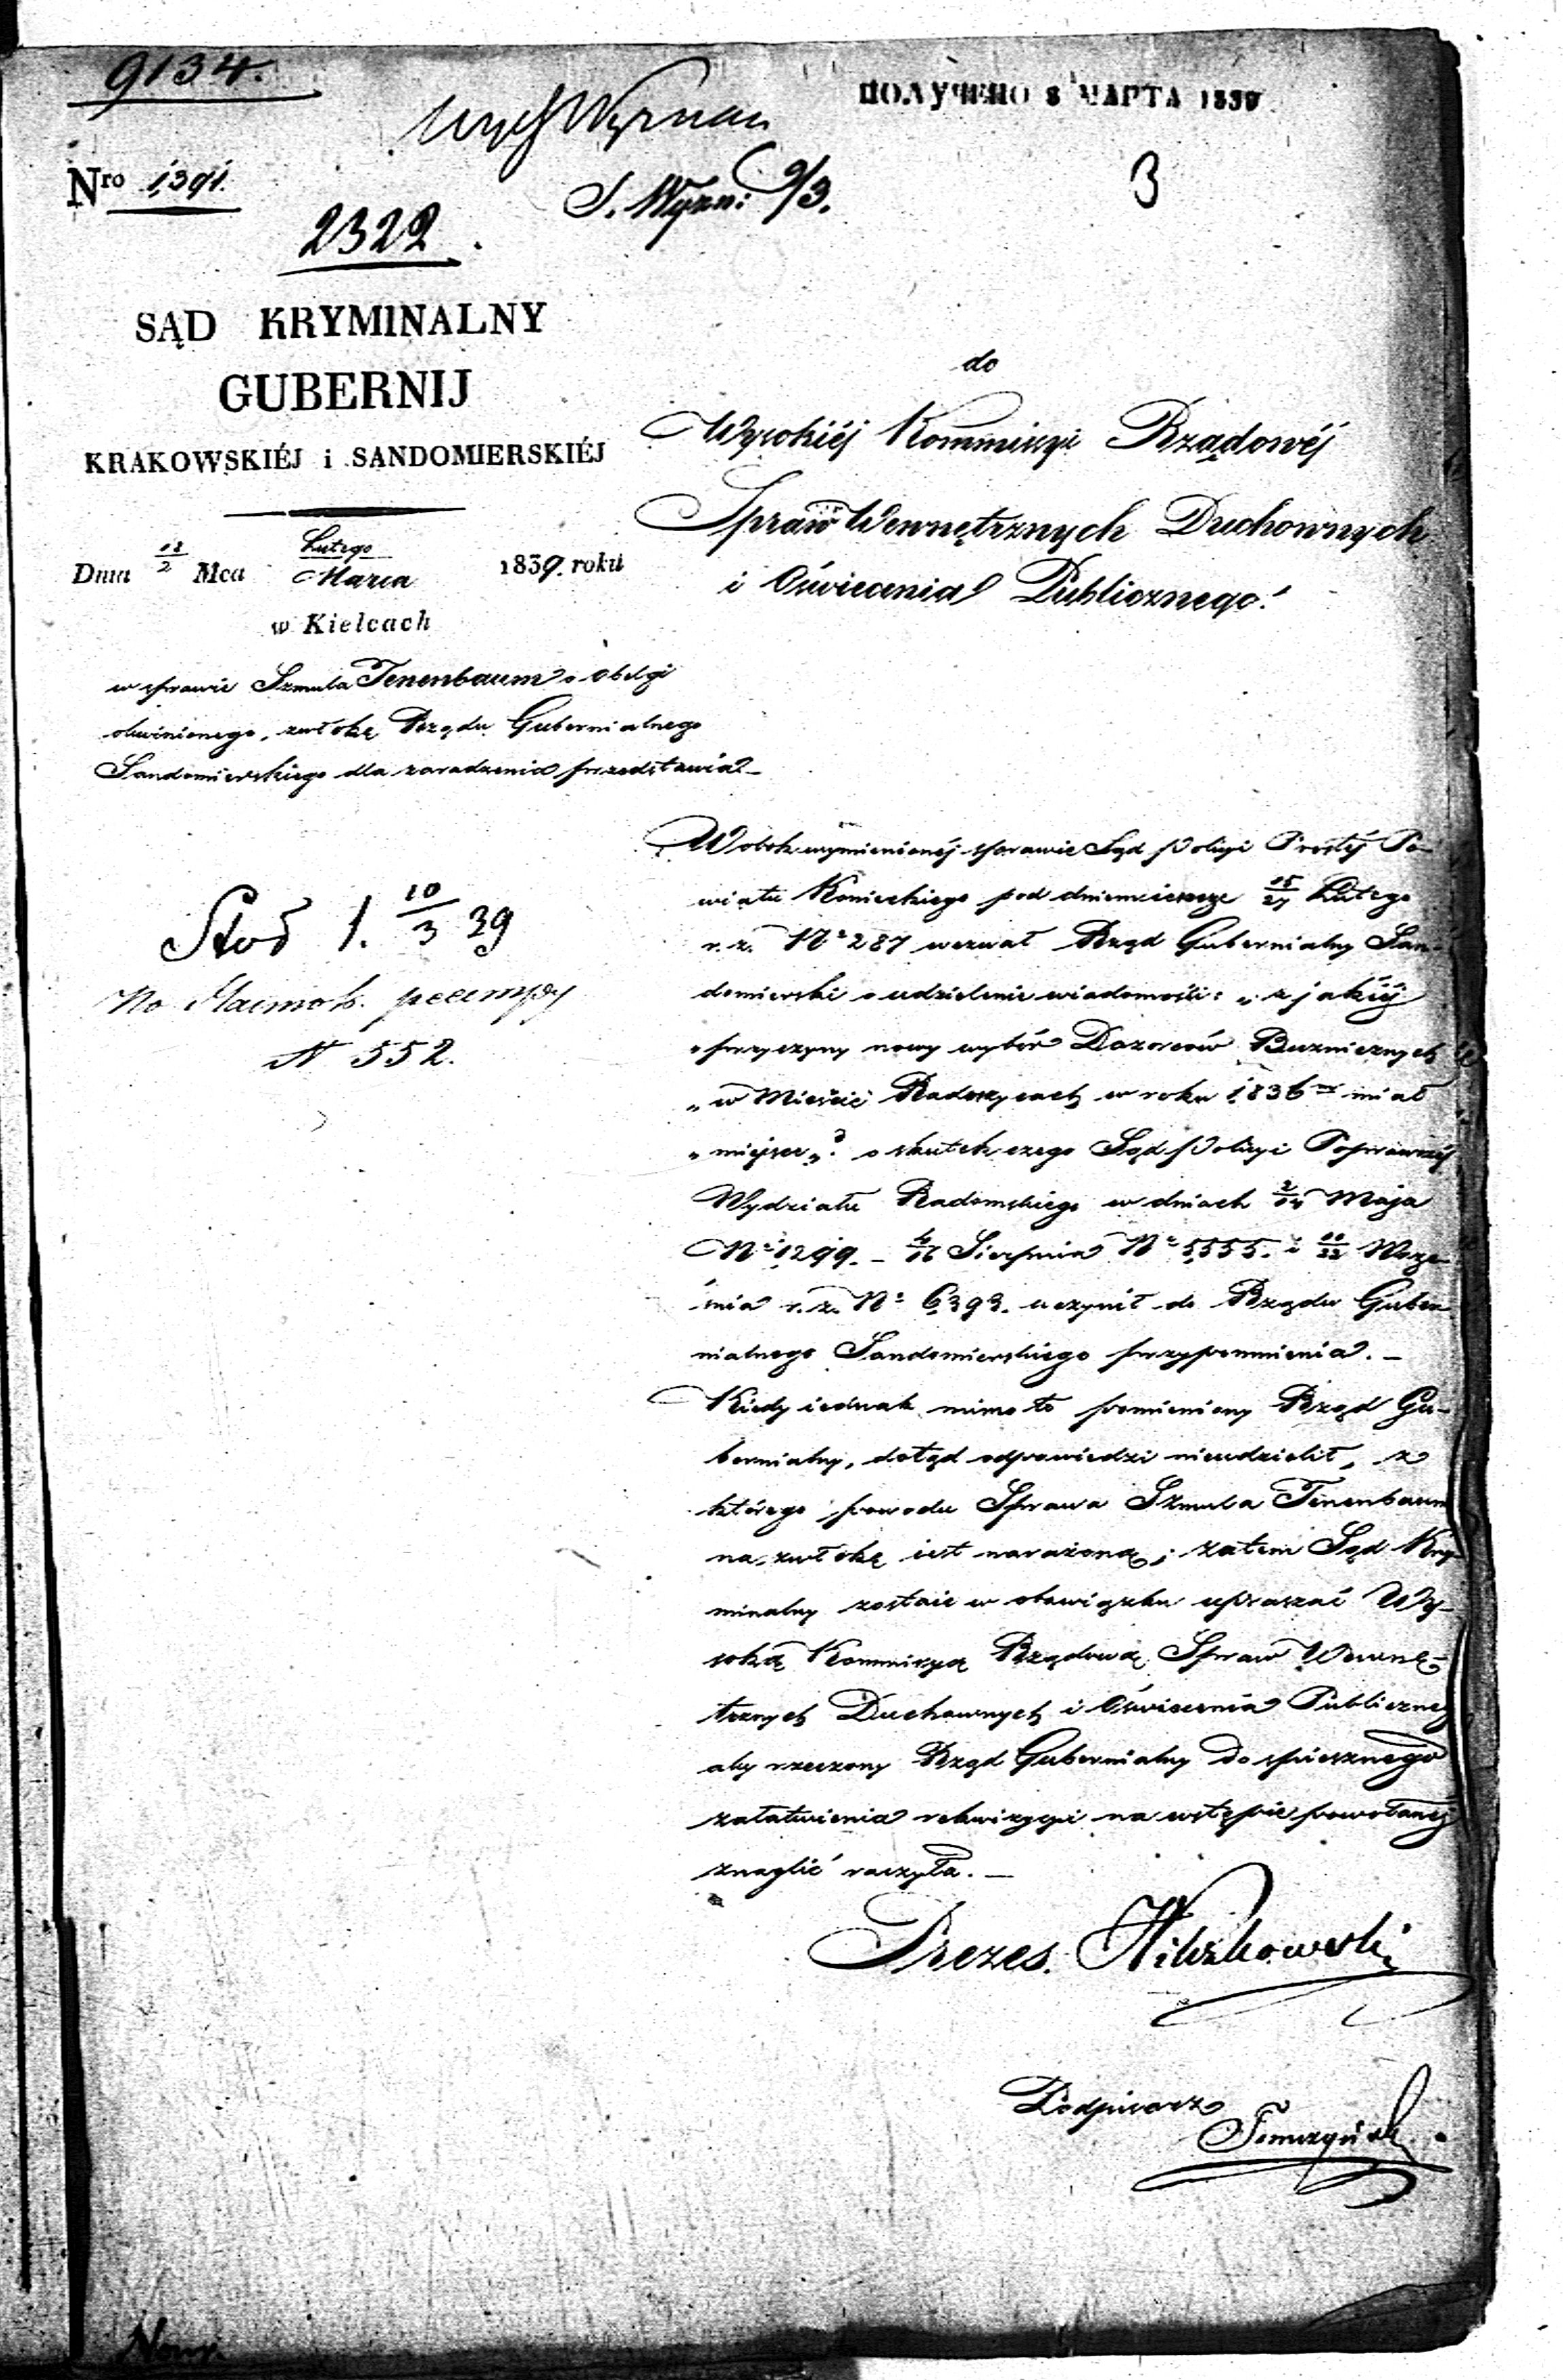 9134.
ПОЛУЧЕНО 8 МАРТА 1839
3
Nro 1391.
S. Wyzn: 9/3.
2322.
SĄD KRYMINALNY
GUBERNIJ
KRAKOWSKIÉJ i SANDOMIERSKIÉJ
Dnia 18/2 Mca Lutego/Marca 1839. roku
w Kielcach
w sprawie Szmula Tenenbaum o obelgi
obwinionego, zwłokę Rządu Gubernialnego
Sandomierskiego dla zaradzenia przedstawia.—
do
Wysokiéj Kommissyi Rządowéj
Spraw Wewnętrznych Duchownych
i Oświecenia Publicznego.
10/3 39
N 552.
W obok wymienionéj sprawie Sąd Policyi Prostéj Po-
wiatu Konieckiego pod dniem 15/27 Lutego
r. z. Nº 287 wezwał Rząd Gubernialny San-
domierski o udzielenie wiadomości: „z jakiéj
„przyczyny nowy wybór Dozorców Bużnicznych
„w Mieście Radoszycach w roku 1836 miał
„miejsce„? o skutek czego Sąd Policyi Poprawczéj
Wydziału Radomskiego w dniach 2/14 Maja
Nº 1299. – 4/16 Sierpnia Nº 5555. i 10/22 Wrze-
śnia r. z. Nº 6393. uczynił do Rządu Guber-
nialnego Sandomierskiego przypomnienia. —
Kiedy iednak mimo to pomieniony Rząd Gu-
bernialny, dotąd odpowiedzi nieudzielił, z
którego powodu Sprawa Szmula Tenenbaum
na zwłokę iest narażoną; zatem Sąd Kry-
minalny zostaie w obowiązku upraszać Wy-
soką Kommissyą Rządową Spraw Wewnę-
trznych Duchownych i Oświecenia Publicznego
aby rzeczony Rząd Gubernialny do spiesznego
załatwienia rekwizycyi na wstępie powołanéj
znaglić raczyła. —
Prezes.
Podpisarz